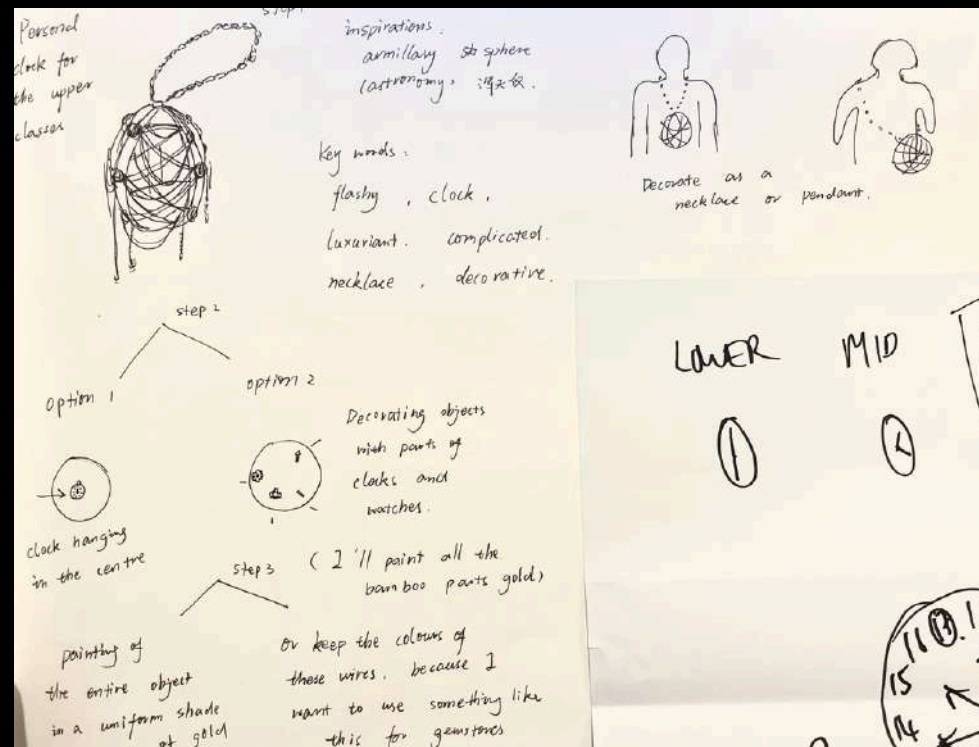 Personal
clock for
the upper
classes
step 1
inspirations.
armillary sphere
(astronomy, 浑天仪.
key words:
flashy , clock ,
luxuriant. complicated.
necklace , decorative.
Decorate as a
necklace or pendant.
step 2
option 1
option 2
clock hanging
in the centre
Decorating objects
with parts of
clocks and
watches.
( I'll paint all the
bamboo parts gold)
step 3
painting of
the entire object
in a uniform shade
of gold
Or keep the colours of
these wires. because I
want to use something like
this for gemstones
LOWER MID
16
15
14